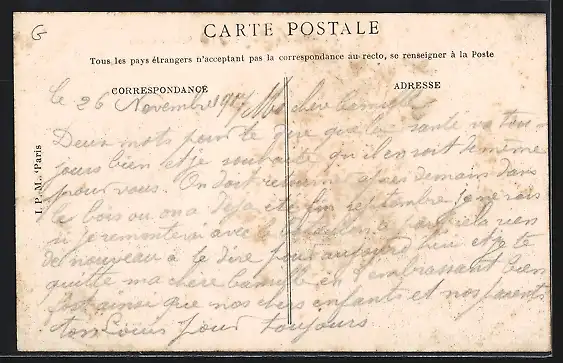 G
CARTE POSTALE
Tous les pays étrangers n'acceptant pas la correspondance au recto, se renseigner à la Poste
CORRESPONDANCE
ADRESSE
I. P. M., Paris
Le 26 Novembre Ma chère Camille
Deux mots pour te dire que la santé va tou-
jours bien et je souhaite qu'il en soit de même
pour vous. On doit retourner après demain dans
le bois ou on a déjà été fin septembre je ne sais
si je remonterai avec le bataillon à part cela rien
de nouveau à te dire pour aujourd'hui et je te
quitte ma chère Camille en t'embrassant bien
fort ainsi que nos chers enfants et nos parents
ton Louis pour toujours